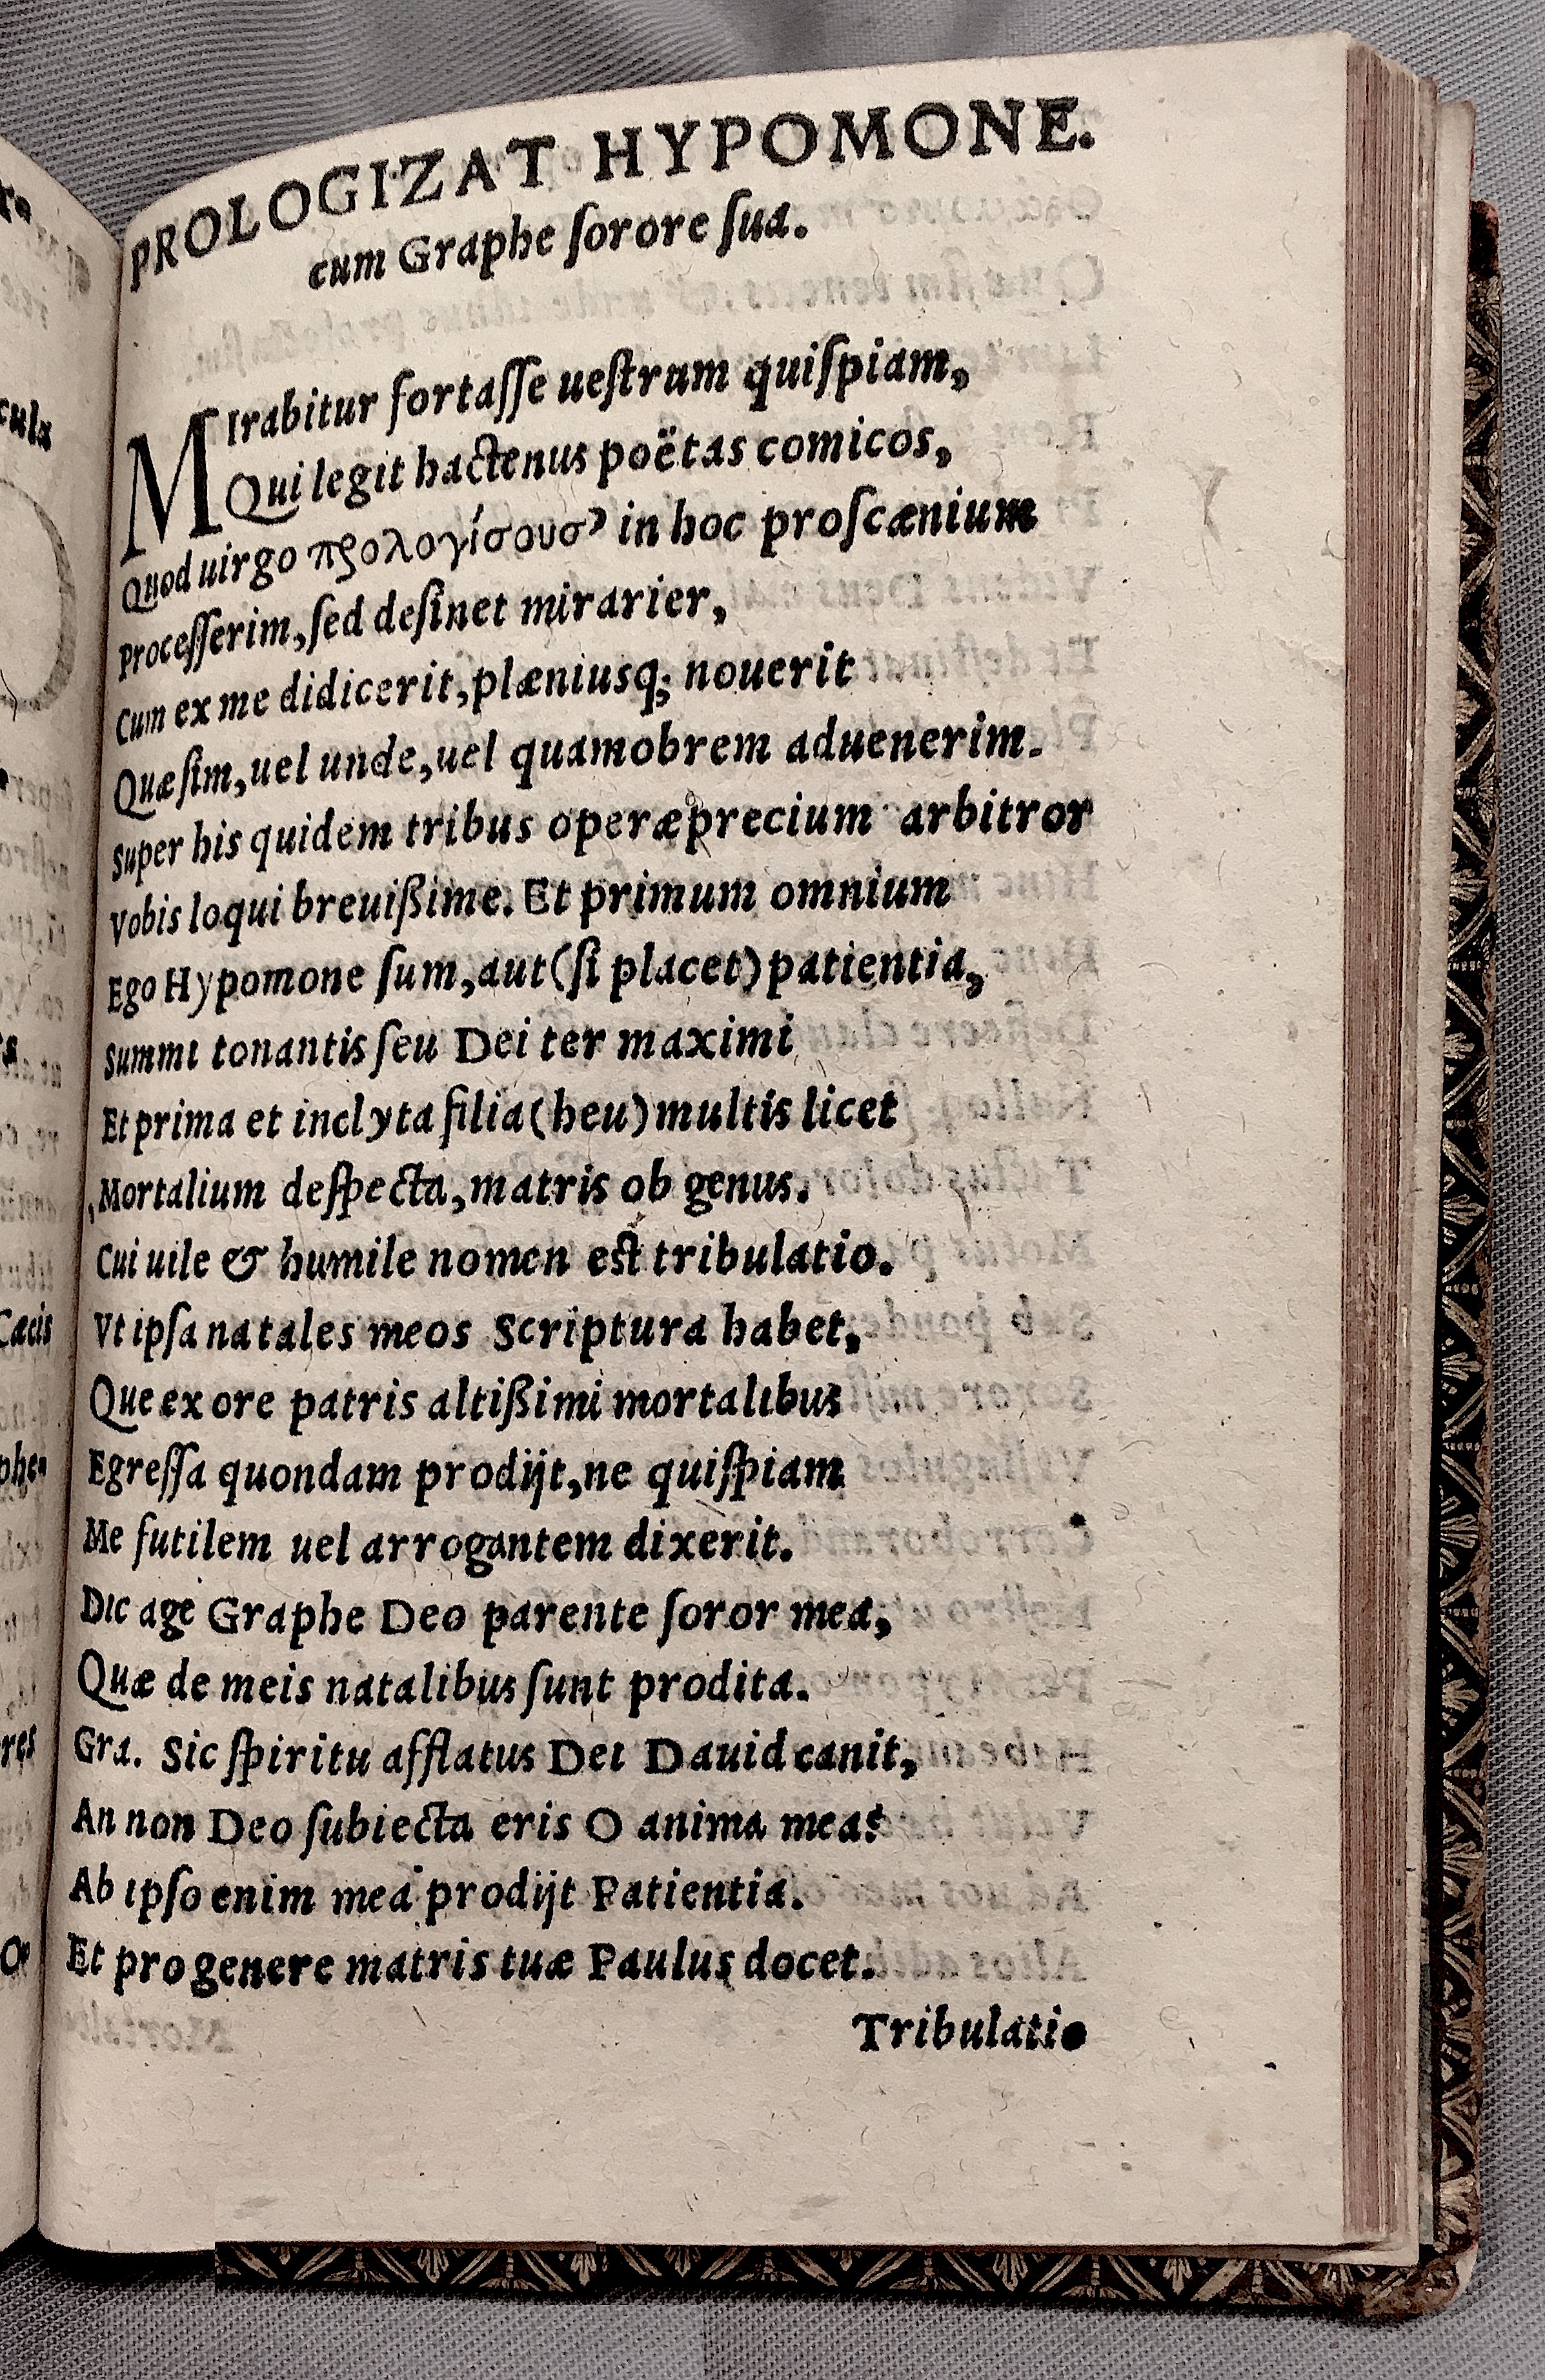 PROLOGIZAT HYPOMONE.
cum Graphe ſorore ſua.
MIrabitur fortaſſe ueſtrum quiſpiam,
Qui legit hactenus poëtas comicos,
Quod uirgo προλογίσουσ' in hoc proſcænium
Proceſſerim, ſed deſinet mirarier,
Cum ex me didicerit, plæniusq; nouerit
Quæ ſim, uel unde, uel quamobrem aduenerim.
Super his quidem tribus operæprecium arbitror
Vobis loqui breuißime. Et primum omnium
Ego Hypomone ſum, aut (ſi placet) patientia,
Summi tonantis ſeu Dei ter maximi
Et prima et inclyta filia (heu) multis licet
Mortalium deſpecta, matris ob genus.
Cui uile & humile nomen eſt tribulatio.
Vt ipſa natales meos Scriptura habet,
Que ex ore patris altißimi mortalibus
Egreſſa quondam prodijt, ne quiſpiam
Me futilem uel arrogantem dixerit.
Dic age Graphe Deo parente ſoror mea,
Quæ de meis natalibus ſunt prodita.
Gra. Sic ſpiritu afflatus Dei Dauid canit,
An non Deo ſubiecta eris O anima mea?
Ab ipſo enim mea prodijt Patientia.
Et pro genere matris tuæ Paulus docet.
Tribulatio